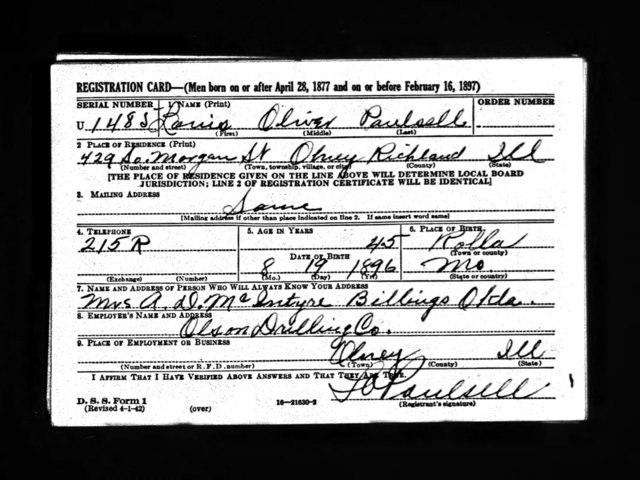 REGISTRATION CARD—(Men born on or after April 28, 1877 and on or before February 16, 1897)
SERIAL NUMBER 1. NAME (Print) ORDER NUMBER
U 1485 Louis Oliver Paulsell
(First) (Middle) (Last)
2. PLACE OF RESIDENCE (Print)
429 So. Morgan St Olney Richland Ill
(Number and street) (Town, township, village, or city) (County) (State)
[THE PLACE OF RESIDENCE GIVEN ON THE LINE ABOVE WILL DETERMINE LOCAL BOARD
JURISDICTION; LINE 2 OF REGISTRATION CERTIFICATE WILL BE IDENTICAL]
3. MAILING ADDRESS
Same
[Mailing address if other than place indicated on line 2. If same insert word same]
4. TELEPHONE 5. AGE IN YEARS 6. PLACE OF BIRTH
215 R 45 Rolla
DATE OF BIRTH (Town or county)
8 19 1896 Mo
(Exchange) (Number) (Mo.) (Day) (Yr.) (State or country)
7. NAME AND ADDRESS OF PERSON WHO WILL ALWAYS KNOW YOUR ADDRESS
Mrs A. D. McIntyre Billings Okla.
8. EMPLOYER'S NAME AND ADDRESS
Olson Drilling Co.
9. PLACE OF EMPLOYMENT OR BUSINESS
Olney Ill
(Number and street or R. F. D. number) (Town) (County) (State)
I AFFIRM THAT I HAVE VERIFIED ABOVE ANSWERS AND THAT THEY ARE TRUE.
L O Paulsell
D. S. S. Form 1
(Revised 4-1-42) (over) 16—21630-2 (Registrant's signature)